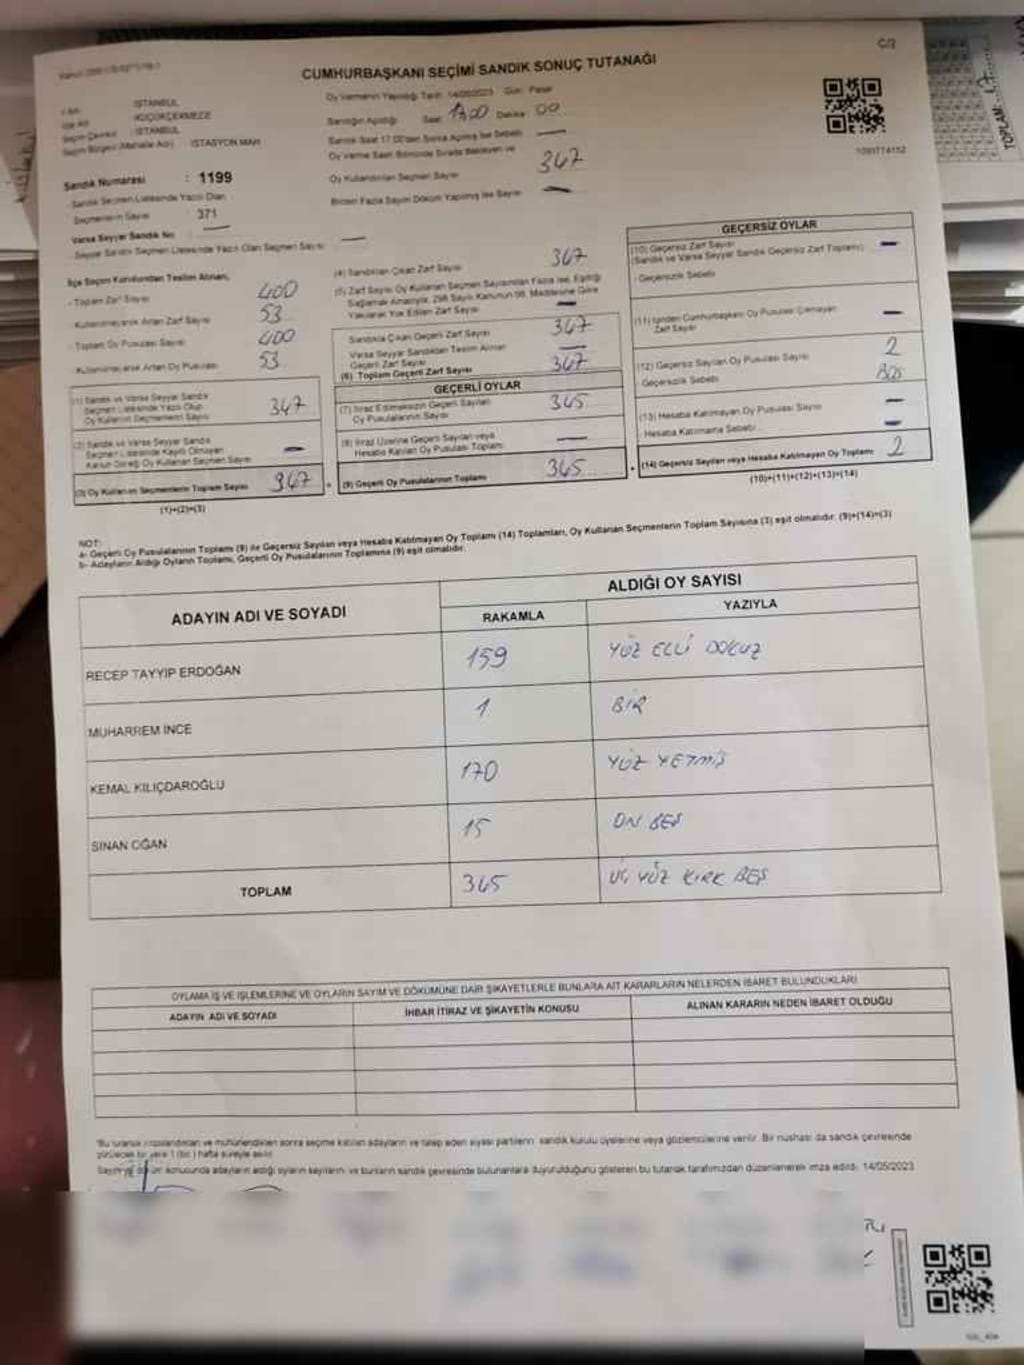 C/2
CUMHURBAŞKANI SEÇİMİ SANDIK SONUÇ TUTANAĞI
İSTANBUL
KÜÇÜKÇEKMECE
İSTANBUL
İSTASYON MAH
Oy Vermenin Yapıldığı Tarih: 14/05/2023 Gün: Pazar
Sandığın Açıldığı Saat 17.00 Dakika 00
Sandık Saat 17.00'den Sonra Açılmış İse Sebebi: —
Oy Verme Saati Bitiminde Sırada Bekleyen ve
Oy Kullandırılan Seçmen Sayısı 347
Birden Fazla Sayım Döküm Yapılmış İse Sayısı —
TOPLAM:
Sandık Numarası : 1199
Sandık Seçmen Listesinde Yazılı Olan
Seçmenlerin Sayısı : 371
Varsa Seyyar Sandık No : —
Seyyar Sandık Seçmen Listesinde Yazılı Olan Seçmen Sayısı —
İlçe Seçim Kurulundan Teslim Alınan;
- Toplam Zarf Sayısı 400
- Kullanılmayarak Artan Zarf Sayısı 53
- Toplam Oy Pusulası Sayısı 400
- Kullanılmayarak Artan Oy Pusulası 53
(1) Sandık ve Varsa Seyyar Sandık
Seçmen Listesinde Yazılı Olup
Oy Kullanan Seçmenlerin Sayısı 347
(2) Sandık ve Varsa Seyyar Sandık
Seçmen Listesinde Kayıtlı Olmayan
Kanun Gereği Oy Kullanan Seçmen Sayısı —
(3) Oy Kullanan Seçmenlerin Toplam Sayısı 347
(1)+(2)=(3)
(4) Sandıktan Çıkan Zarf Sayısı 347
(5) Zarf Sayısı Oy Kullanan Seçmen Sayısından Fazla ise, Eşitliği
Sağlamak Amacıyla, 298 Sayılı Kanunun 98. Maddesine Göre
Yakılarak Yok Edilen Zarf Sayısı —
Sandıkta Çıkan Geçerli Zarf Sayısı 347
Varsa Seyyar Sandıktan Teslim Alınan
Geçerli Zarf Sayısı —
(6) Toplam Geçerli Zarf Sayısı 347
GEÇERLİ OYLAR
(7) İtiraz Edilmeksizin Geçerli Sayılan
Oy Pusulalarının Sayısı 345
(8) İtiraz Üzerine Geçerli Sayılan veya
Hesaba Katılan Oy Pusulası Toplamı —
(9) Geçerli Oy Pusulalarının Toplamı 345
GEÇERSİZ OYLAR
(10) Geçersiz Zarf Sayısı
(Sandık ve Varsa Seyyar Sandık Geçersiz Zarf Toplamı) —
- Geçersizlik Sebebi:
(11) İçinden Cumhurbaşkanı Oy Pusulası Çıkmayan
Zarf Sayısı —
(12) Geçersiz Sayılan Oy Pusulası Sayısı 2
Geçersizlik Sebebi: BOŞ
(13) Hesaba Katılmayan Oy Pusulası Sayısı —
- Hesaba Katılmama Sebebi: —
(14) Geçersiz Sayılan veya Hesaba Katılmayan Oy Toplamı 2
(10)+(11)+(12)+(13)=(14)
NOT:
a- Geçerli Oy Pusulalarının Toplamı (9) ile Geçersiz Sayılan veya Hesaba Katılmayan Oy Toplamı (14) Toplamları, Oy Kullanan Seçmenlerin Toplam Sayısına (3) eşit olmalıdır. (9)+(14)=(3)
b- Adayların Aldığı Oyların Toplamı, Geçerli Oy Pusulalarının Toplamına (9) eşit olmalıdır.
ADAYIN ADI VE SOYADI ALDIĞI OY SAYISI
RAKAMLA YAZIYLA
RECEP TAYYİP ERDOĞAN 159 YÜZ ELLİ DOKUZ
MUHARREM İNCE 1 BİR
KEMAL KILIÇDAROĞLU 170 YÜZ YETMİŞ
SİNAN OĞAN 15 ON BEŞ
TOPLAM 345 ÜÇ YÜZ KIRK BEŞ
OYLAMA İŞ VE İŞLEMLERİNE VE OYLARIN SAYIM VE DÖKÜMÜNE DAİR ŞİKAYETLERLE BUNLARA AİT KARARLARIN NELERDEN İBARET BULUNDUKLARI
ADAYIN ADI VE SOYADI İHBAR İTİRAZ VE ŞİKAYETİN KONUSU ALINAN KARARIN NEDEN İBARET OLDUĞU
konusunda adayların aldığı oyların sayılarını ve bunların sandık çevresinde bulunanlara duyurulduğunu gösteren bu tutanak tarafımızdan düzenlenerek imza edildi. 14/05/2023